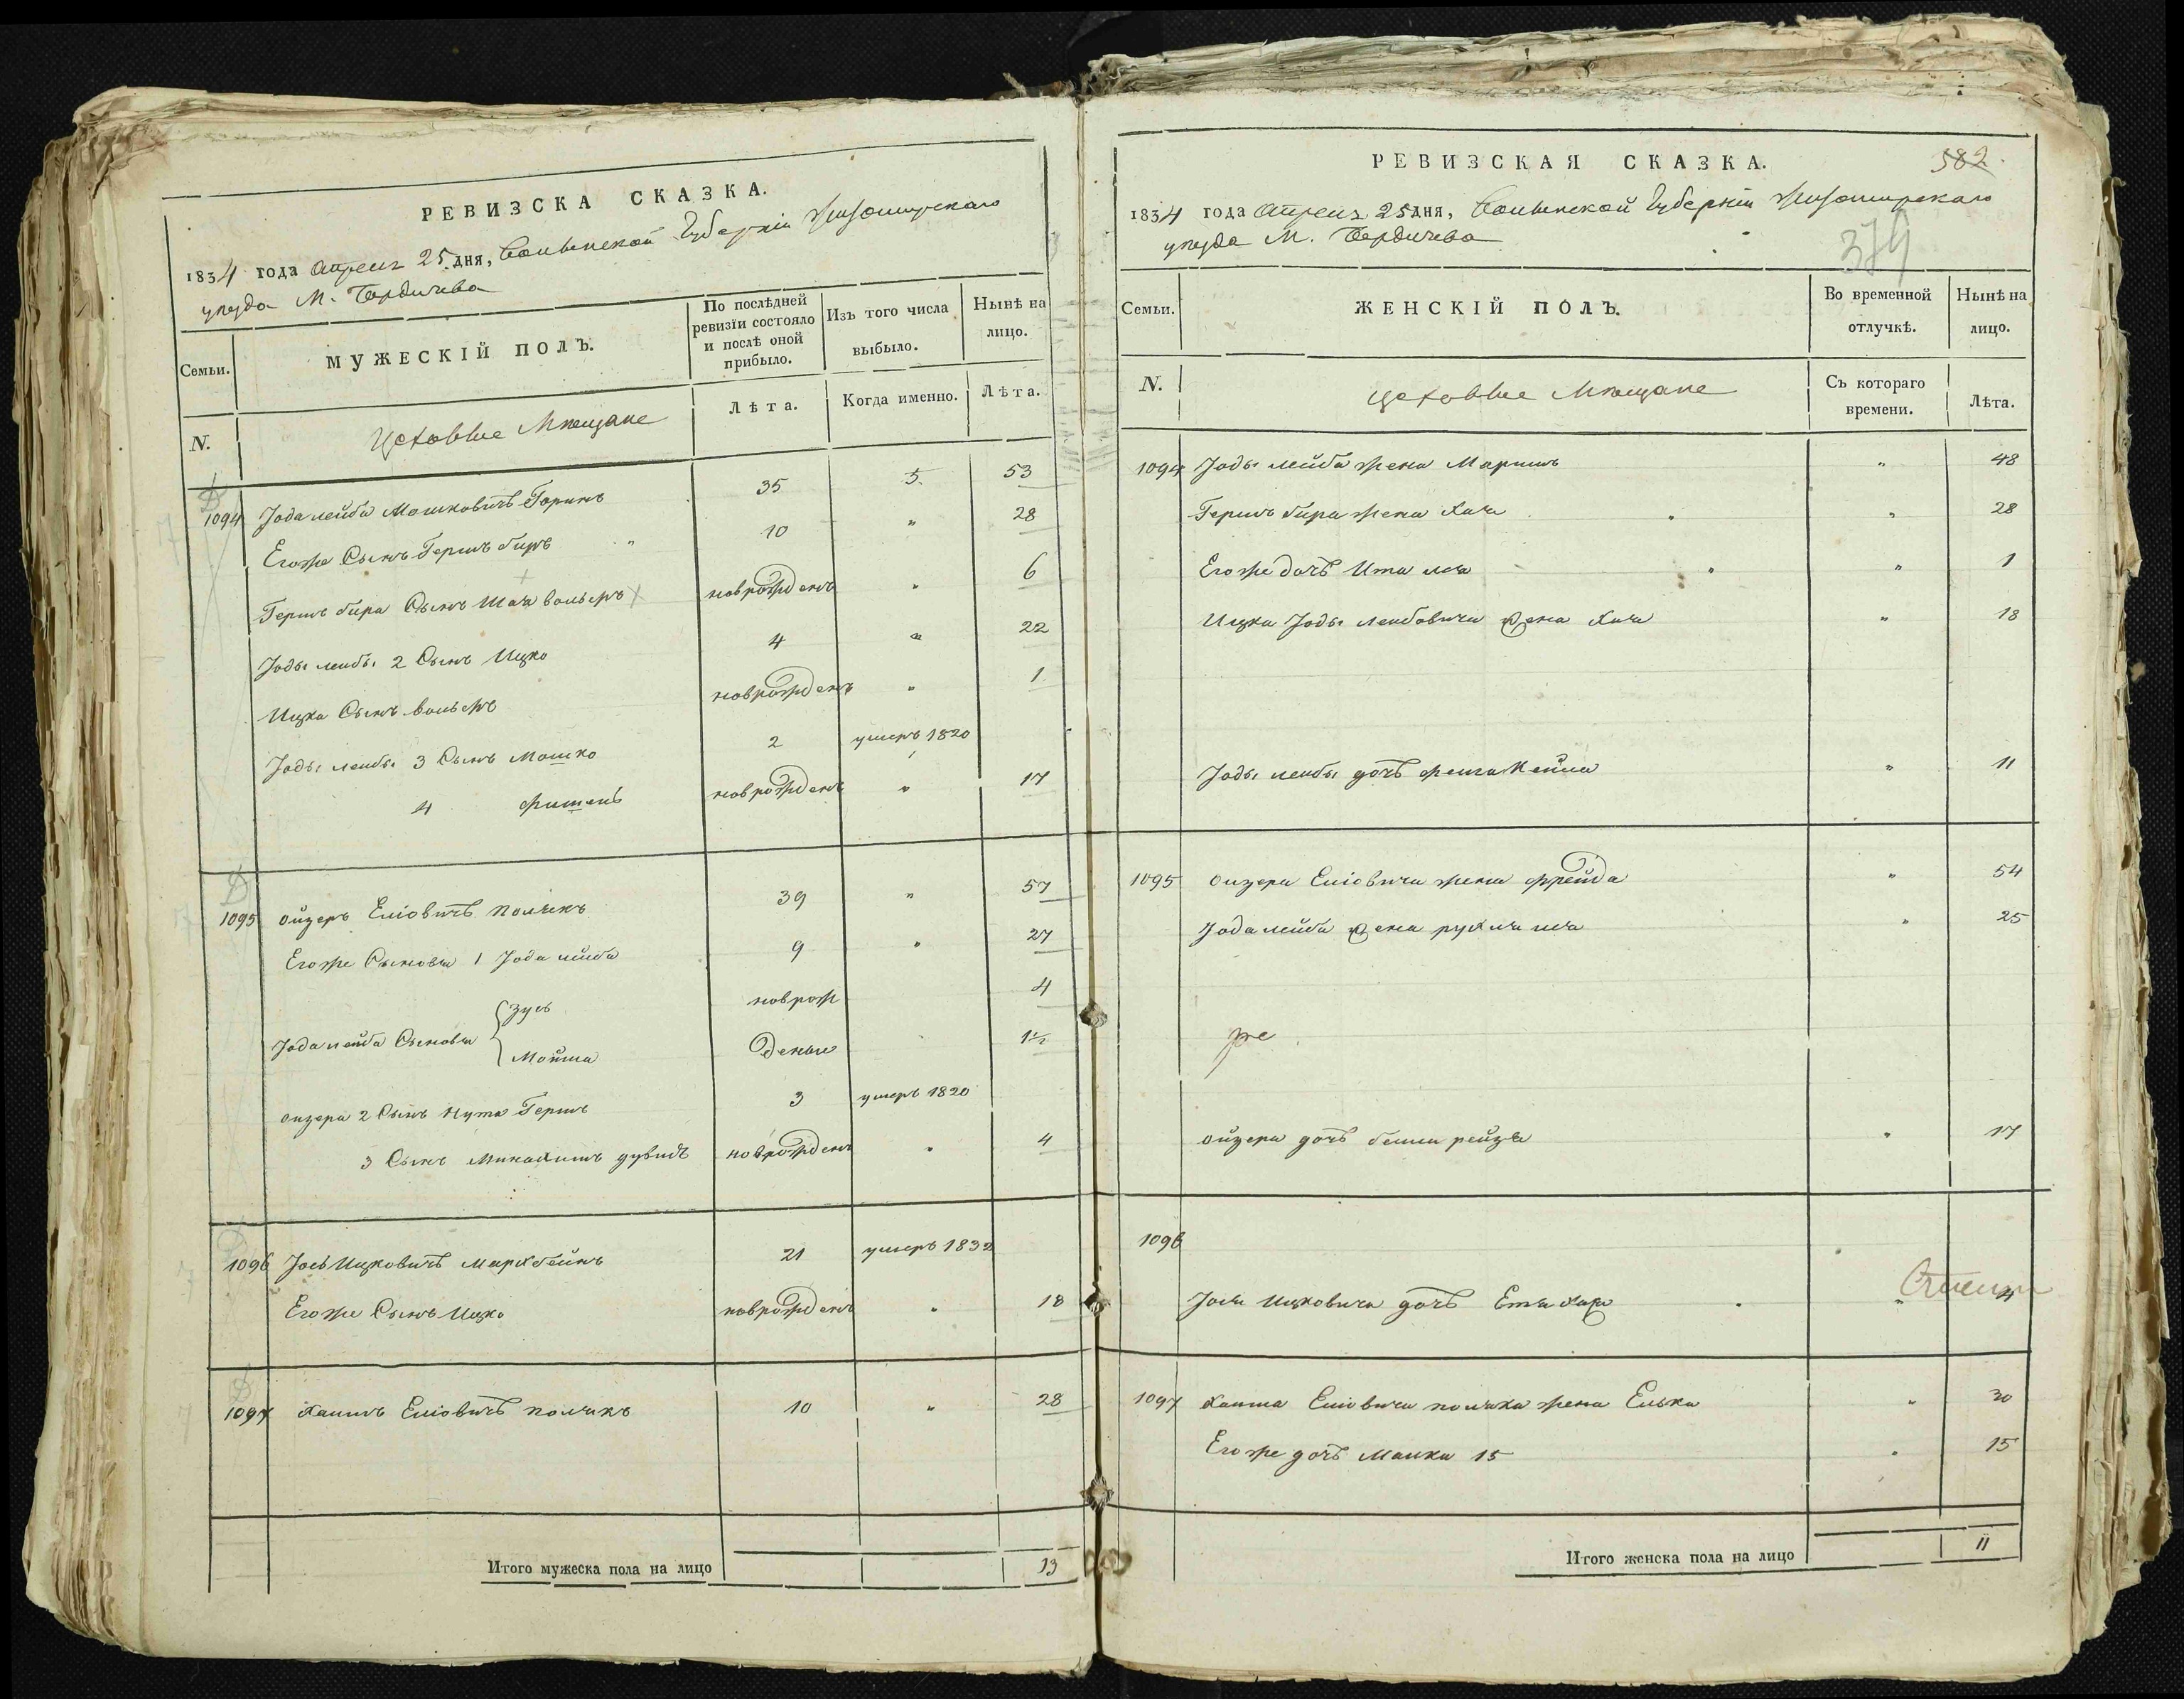 РЕВИЗСКА СКАЗКА.
1834 года Апреля 25 дня, Волынской Губернiи Житомирского
уезда М. Бердичева
Семьи.
МУЖЕСКIЙ ПОЛЪ.
По послѣдней ревизiи состояло и послѣ оной прибыло.
Изъ того числа выбыло.
Нынѣ на лицо.
N.
Цеховые Мещане
Лѣта.
Когда именно.
Лѣта.
1094 Иода лейба Мошковичъ 35 53
Егоже Сынъ Гершъ бер 10 " 28
Гершъ бера Сынъ Шая вольфъ новрожденъ " 6
Иоды лейбы 2 Сынъ Ицко 4 " 22
Ицка Сынъ вольфъ новрожденъ " 1
Иоды лейбы 3 Сынъ Мошко 2 умеръ 1820
4 фишель новрожденъ " 17
1095 Ойзеръ Елiовичъ Полякъ 39 " 57
Егоже Сыновья 1 Иода лейба 9 " 27
Иода лейба Сыновья { Зусь новрож 4
Мойша деные 1½
Ойзера 2 Сынъ Нута Гершъ 3 умеръ 1820
3 Сынъ дувидъ новрожденъ " 4
1096 Иось Ицковичъ 21 умеръ 1832
Егоже Сынъ Ицко новрожденъ " 18
1097 Хаимъ Елiовичъ полякъ 10 " 28
Итого мужеска пола на лицо 13
РЕВИЗСКАЯ СКАЗКА.
582.
379
1834 года Апреля 25 дня, Волынской Губернiи Житомирского
уезда М. Бердичева
Семьи.
ЖЕНСКIЙ ПОЛЪ.
Во временной отлучкѣ.
Нынѣ на лицо.
N.
Цеховые Мещане
Съ котораго времени.
Лѣта.
1094 Иоды лейба жена Мариша " 48
Гершъ бера жена Хая " 28
Егоже дочь Ита лея " 1
Ицка Иоды лейбовича жена Хая " 18
Иоды лейбы дочь фейга " 11
1095 Ойзера Елiовича жена фрейда " 54
Иода лейба жена рухля лея " 25
же
Ойзера дочь бейла рейзя " 17
1096
Иося Ицковича дочь Етя Хая " 4
1097 Хаима Елiовича поляка жена Елька " 30
Егоже дочь Малка 15 " 15
Итого женска пола на лицо 11